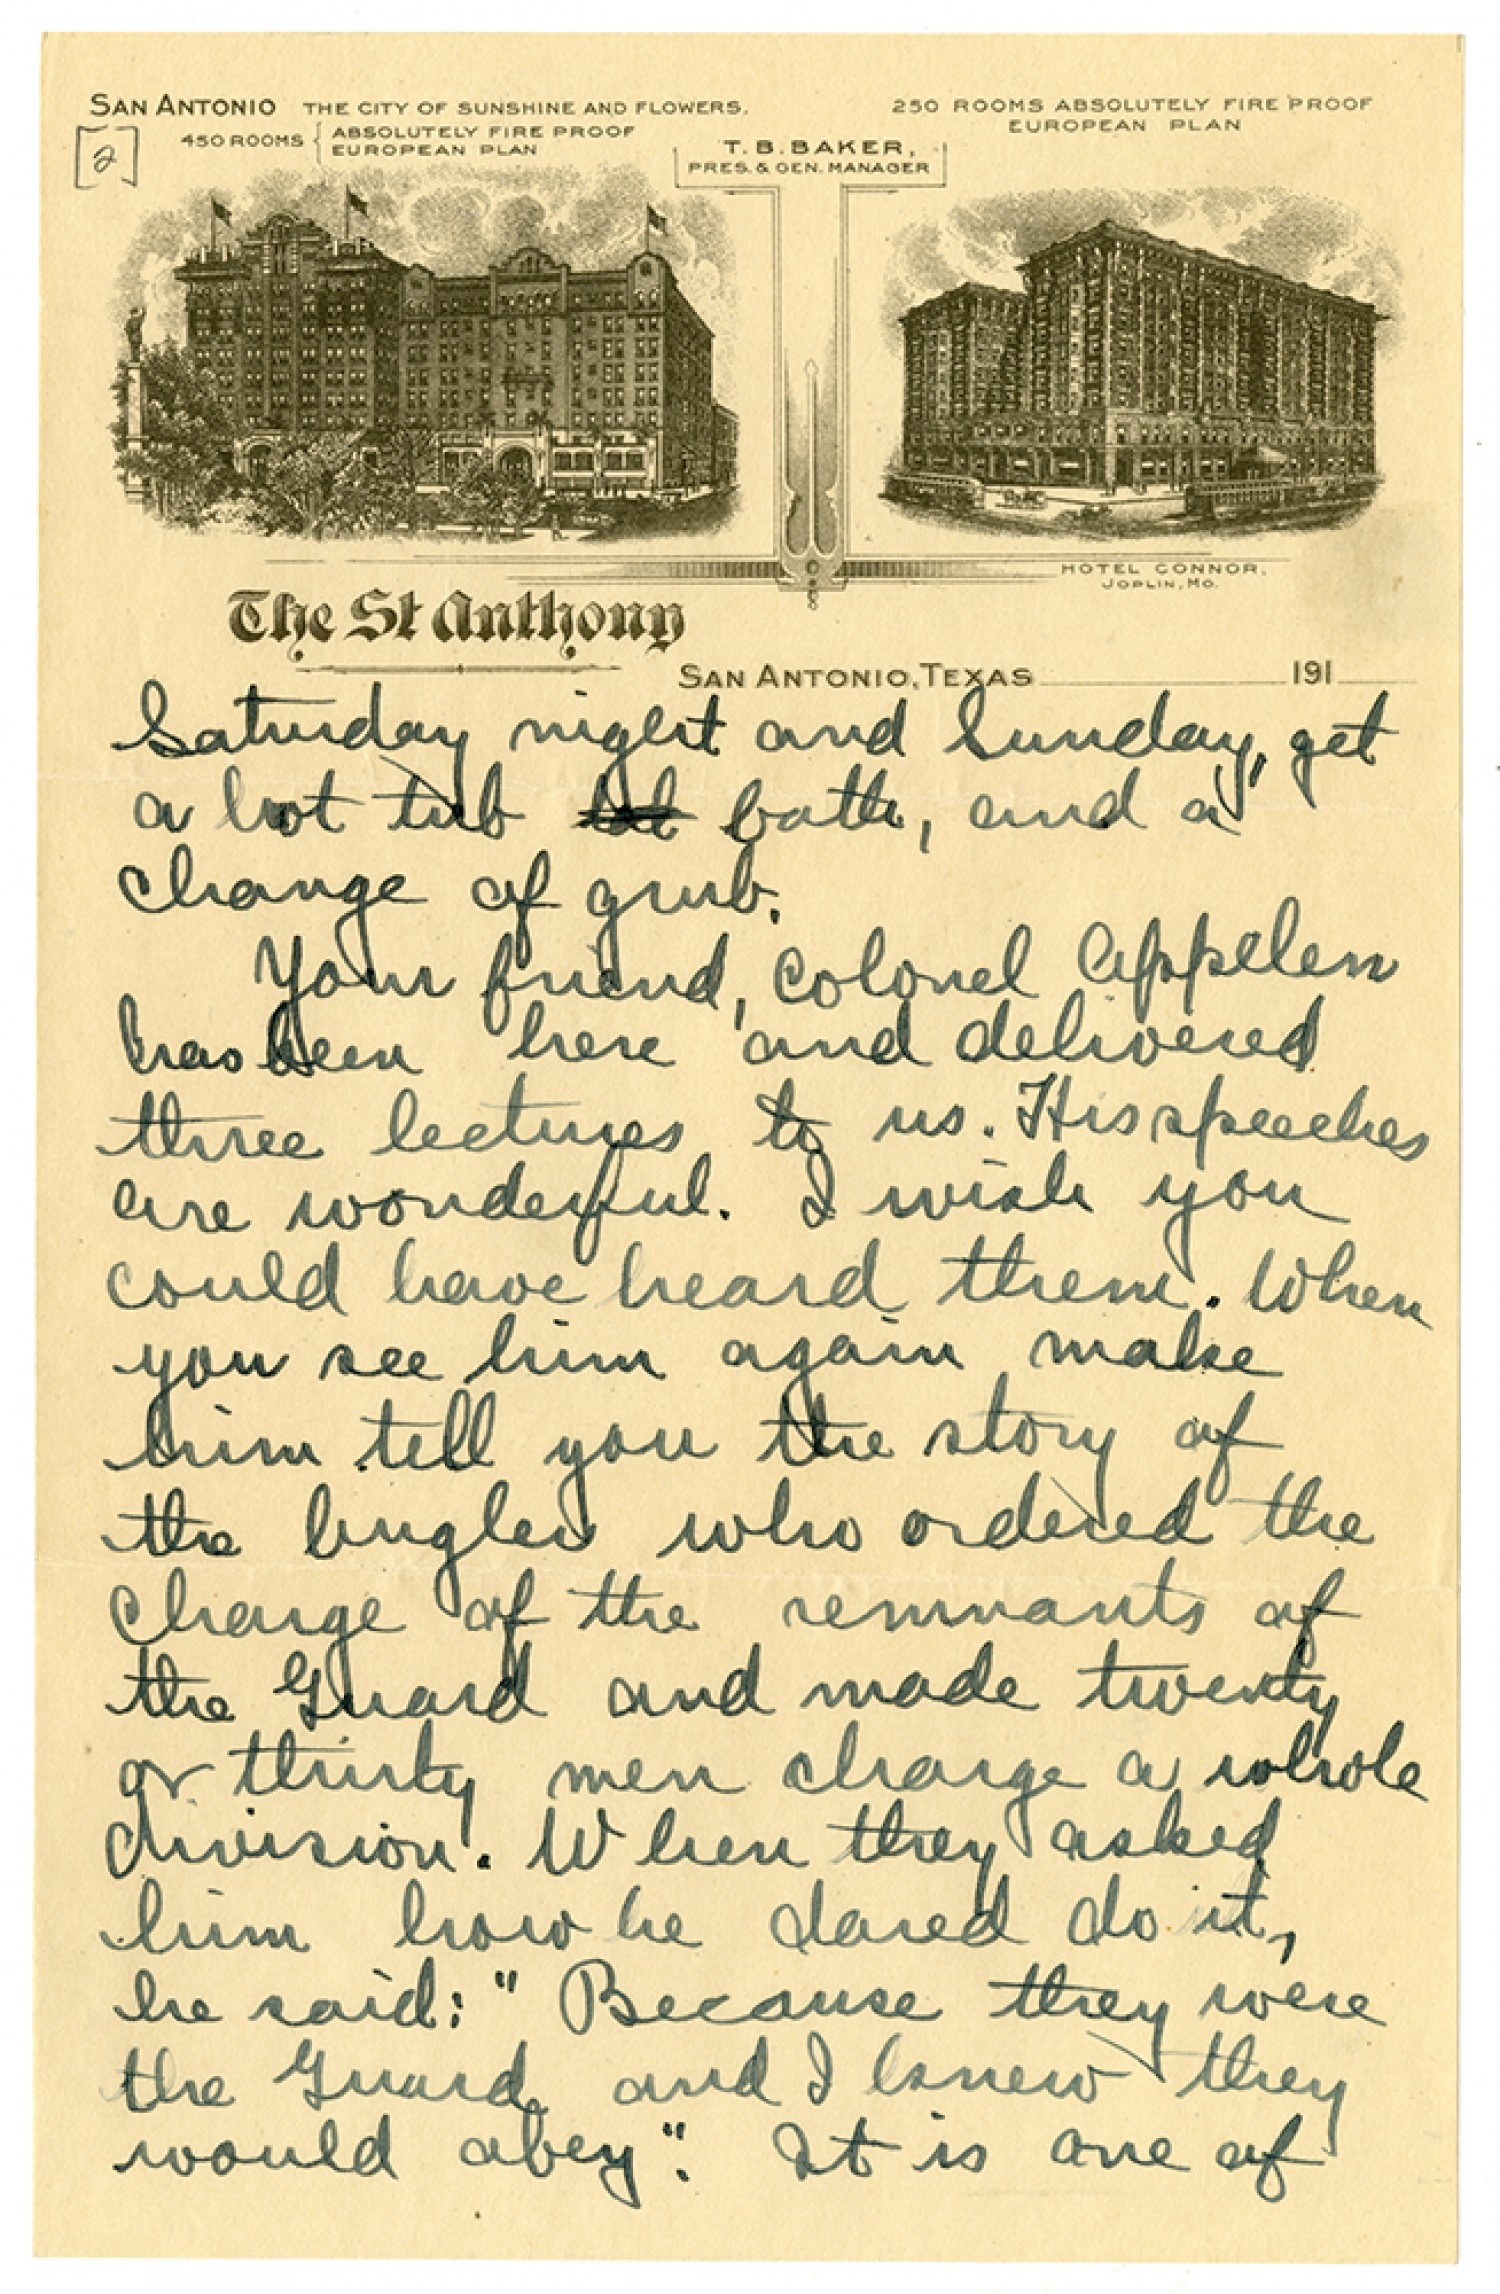 SAN ANTONIO THE CITY OF SUNSHINE AND FLOWERS.
450 ROOMS { ABSOLUTELY FIRE PROOF
EUROPEAN PLAN
[2]
T. B. BAKER,
PRES. & GEN. MANAGER
250 ROOMS ABSOLUTELY FIRE PROOF
EUROPEAN PLAN
HOTEL CONNOR,
JOPLIN, MO.
The St Anthony
SAN ANTONIO, TEXAS 191
Saturday night and Sunday, get
a hot tub bath, and a
change of grub.
Your friend, Colonel Appelen
has been here and delivered
three lectures to us. His speeches
are wonderful. I wish you
could have heard them. When
you see him again make
him tell you the story of
the bugler who ordered the
charge of the remnants of
the Guard and made twenty
or thirty men charge a whole
division. When they asked
him how he dared do it,
he said: "Because they were
the Guard and I knew they
would obey". It is one of